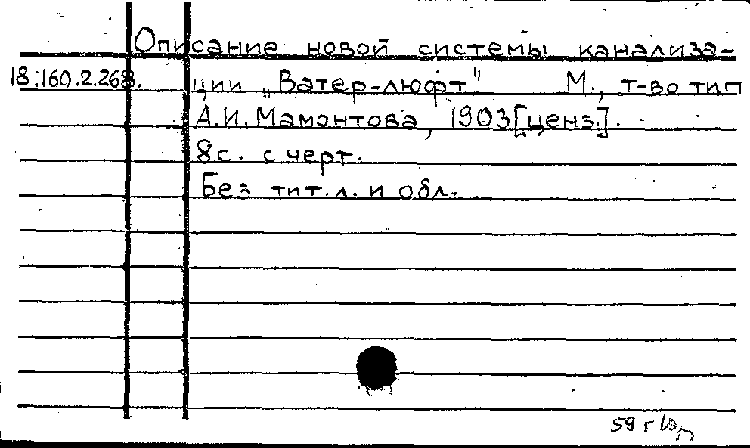 Описание новой системы канализа-
18:160.2.268. ции „Ватер-люфт" М., т-во тип
А.И. Мамонтова, 1903 [ценз.].
8с. с черт.
Без тит. л. и обл.
59 г